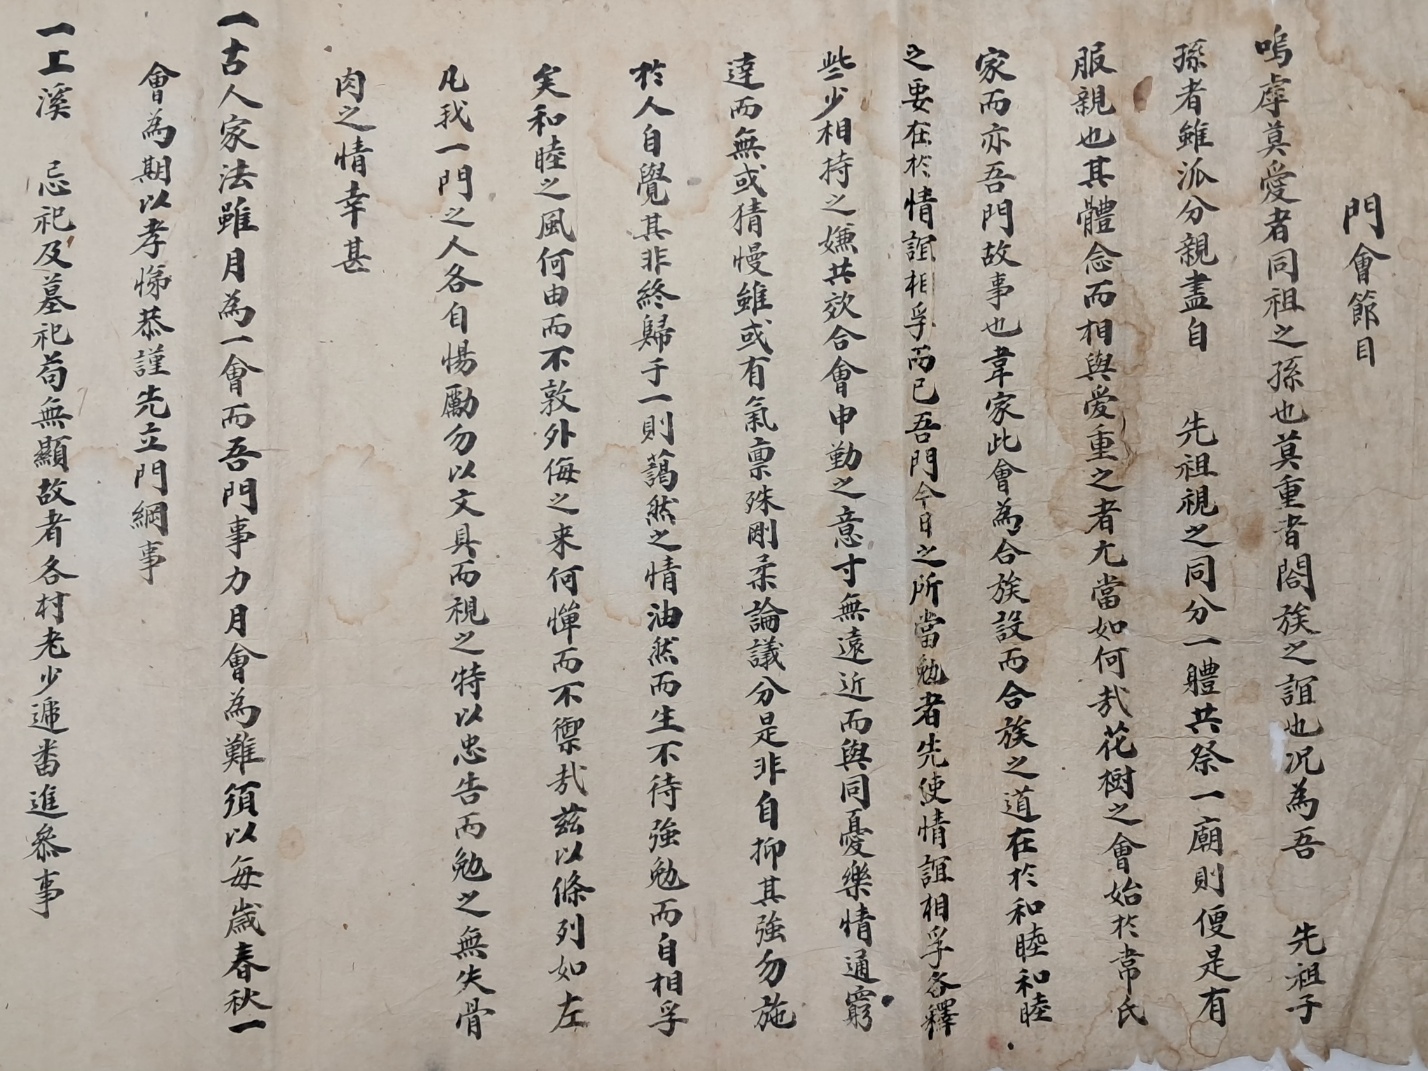 門會節目
嗚虖莫愛者同祖之孫也莫重者閤族之誼也况為吾 先祖子
孫者雖派分親盡自 先祖視之同分一體共祭一廟則便是有
服親也其體念而相與愛重之者尤當如何㢤花樹之會始於韋氏
家而亦吾門故事也韋家此會為合族設而合族之道在於和睦和睦
之要在於情誼相孚而已吾門今日之所當勉者先使情誼相孚各釋
些少相持之嫌共效合會申勤之意寸無遠近而與同憂樂情通窮
達而無或猜慢雖或有氣禀殊剛柔論議分是非自抑其強勿施
於人自覺其非終歸于一則藹然之情油然而生不待強勉而自相孚
矣和睦之風何由而不敦外侮之来何憚而不禦㢤玆以條列如左
凡我一門之人各自惕勵勿以文具而視之特以忠告而勉之無失骨
肉之情幸甚
一古人家法雖月為一會而吾門事力月會為難須以每歲春秋一
會為期以孝悌恭謹先立門綱事
一工溪 忌祀及墓祀苟無顯故者各村老少遞畨進叅事